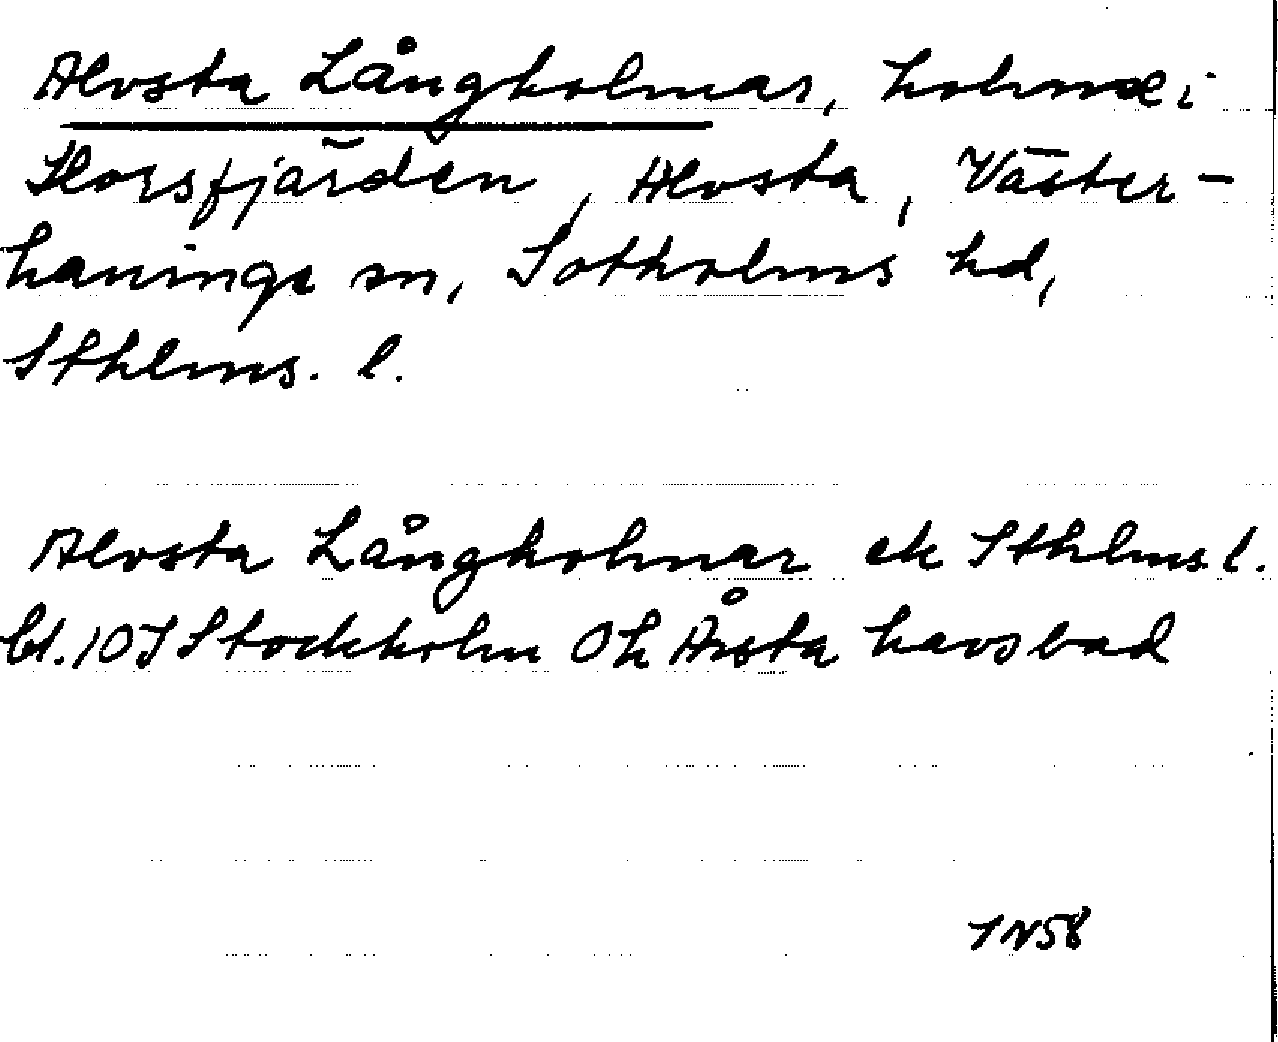 Alvsta Långholmar, holmar i
Horsfjärden, Alvsta, Väster-
haninge sn, Sotholms hd,
Sthlms. l.
Alvsta Långholmar ek Sthlms l.
bl. 10I Stockholm Oh Årsta havsbad
IN58